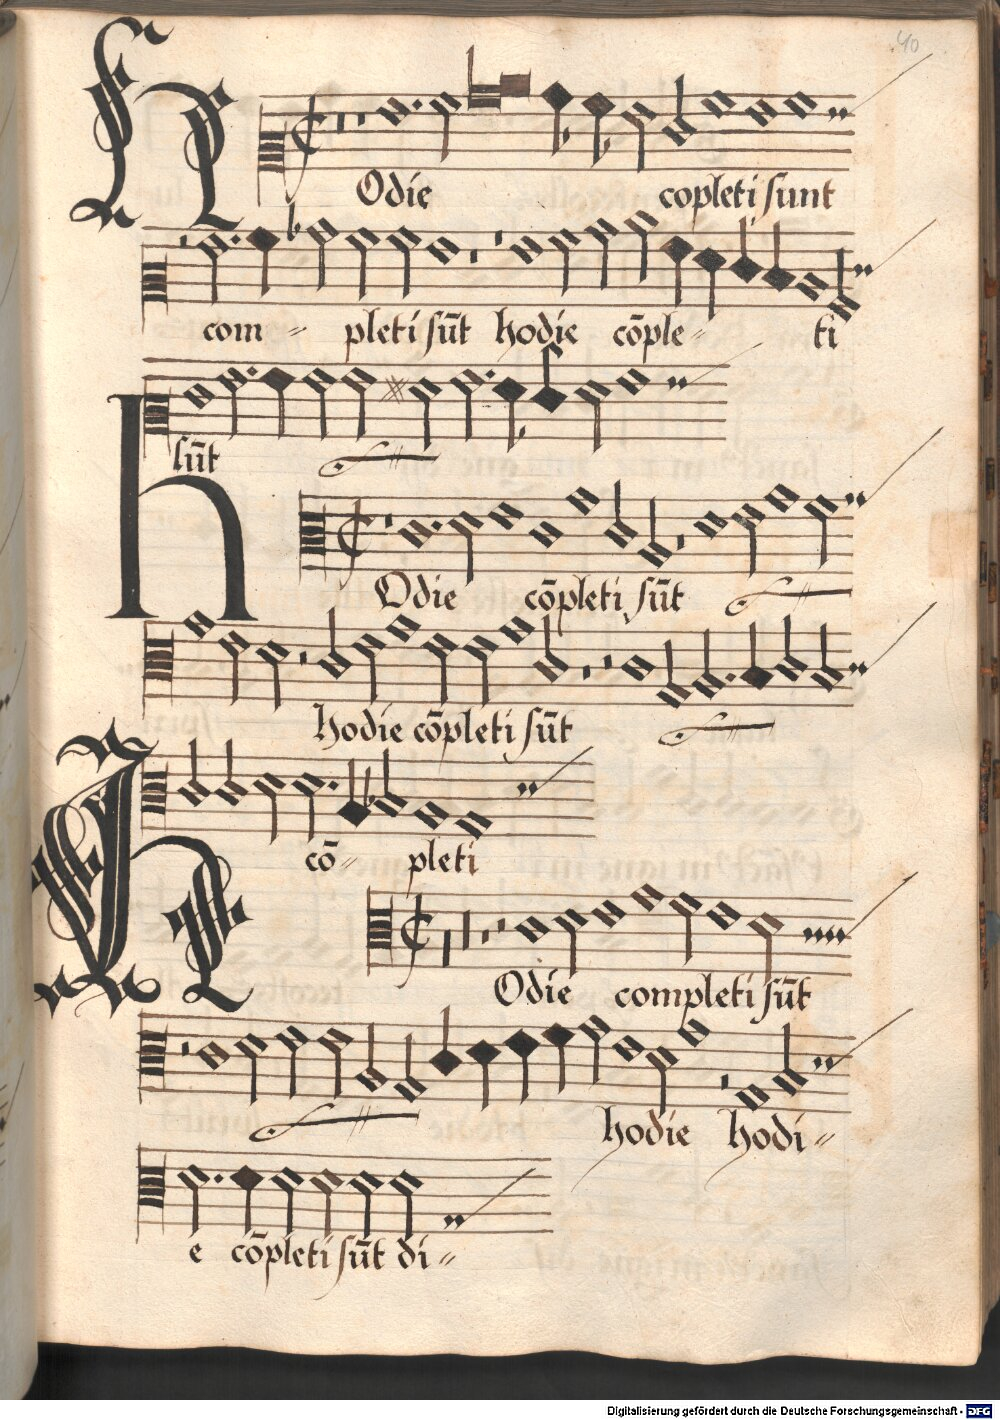 40
H Odie copleti sunt
com= pleti sūt hodie cōple= ti
sūt
h Odie cōpleti sūt
hodie cōpleti sūt
cō= pleti
H Odie completi sūt
hodie hodi=
e cōpleti sūt di=
Digitalisierung gefördert durch die Deutsche Forschungsgemeinschaft - DFG